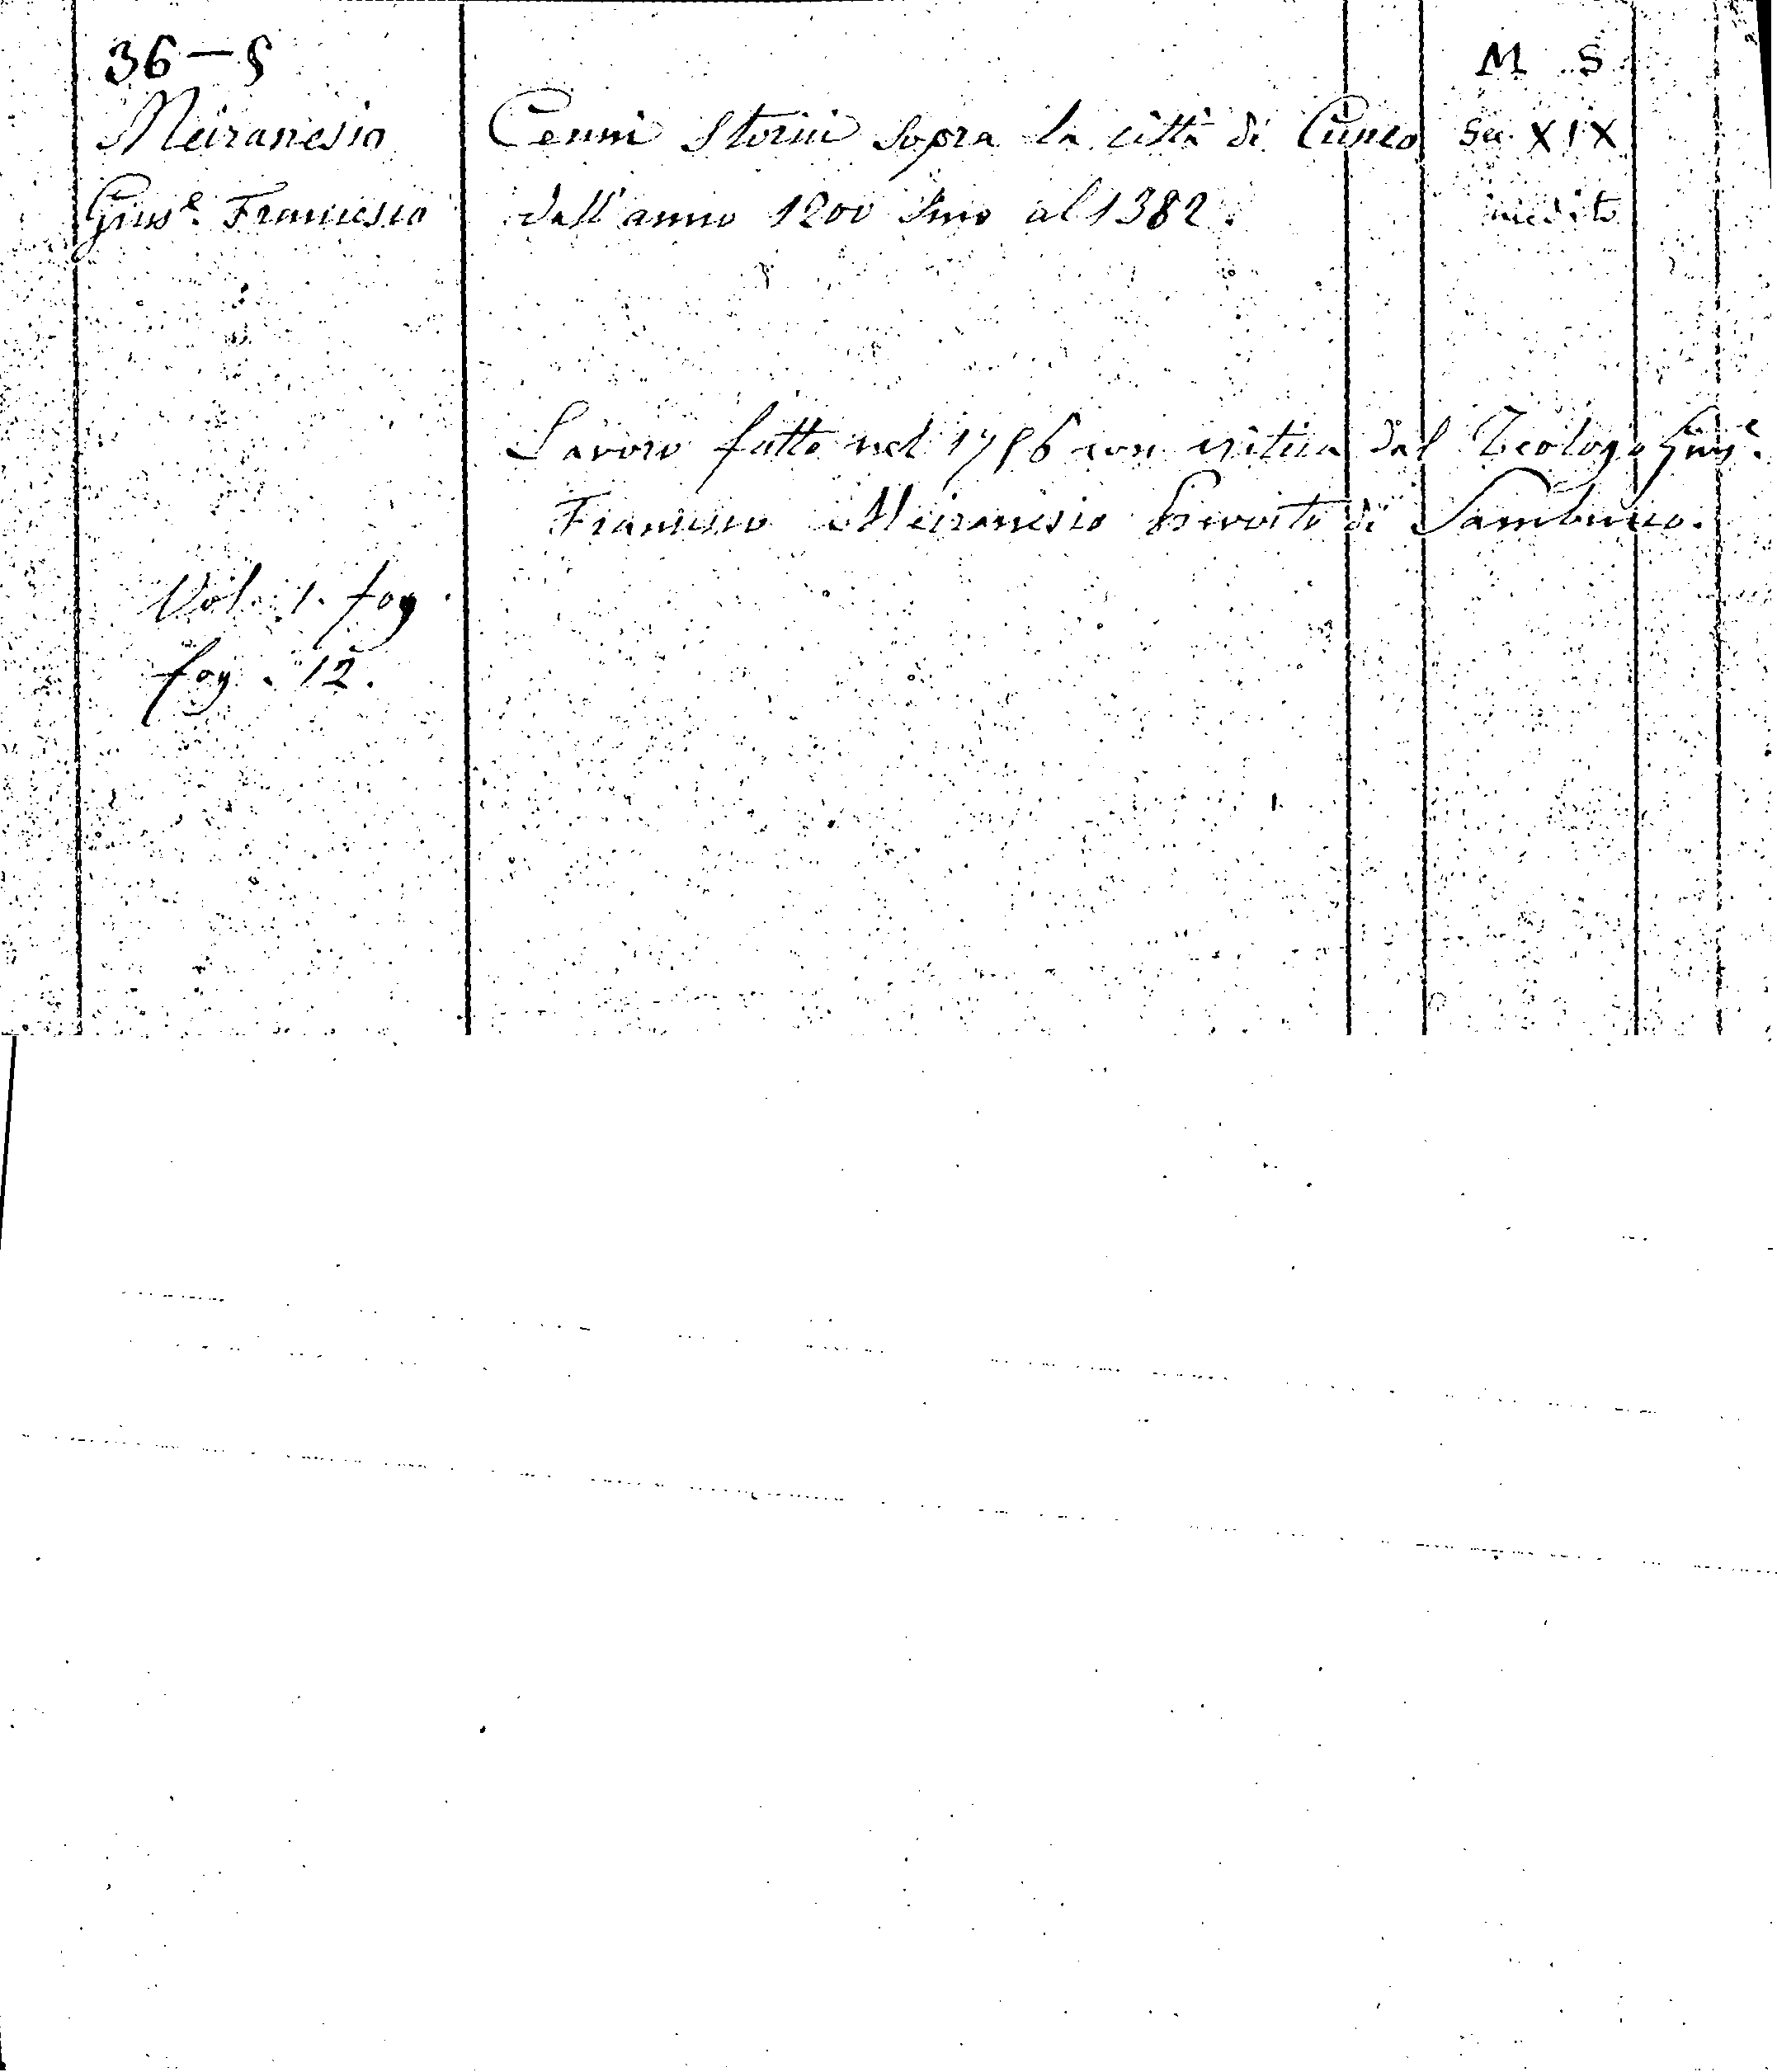 36 — §
M S
Meiranesio
Cenni Storici sopra la città di Cuneo
Sec. XIX
Gius.e Francesco
dall'anno 1200 sino al 1382.
inedito
Lavoro fatto nel 1756 con critica dal Teologo Gius.e
Francesco Meiranesio Prevosto di Sambuco.
Vol. 1. fog.
fog. 12.